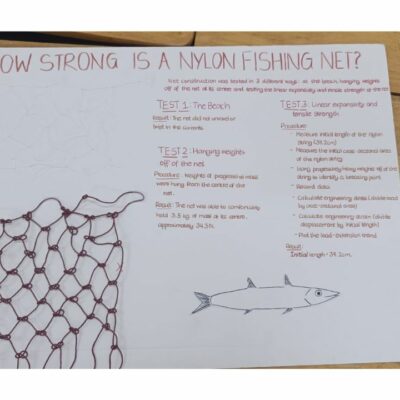 OW STRONG IS A NYLON FISHING NET?
Net construction was tested in 3 different ways: at the beach, hanging weights
off of the net at its centre and testing the linear expansivity and tensile strength of the net
TEST 1: The Beach
Result: The net did not unravel or
break in the currents.
TEST 2: Hanging weights
off of the net
Procedure: Weights of progressive mass
were hung from the centre of the
net.
Result: The net was able to comfortably
hold 3.5 kg of mass at its centre,
approximately 34.3N.
TEST 3: Linear expansivity and
tensile strength
Procedure:
- Measure initial length of the nylon
string (34.2cm)
- Measure the initial cross-sectional area
of the nylon string.
- Hang progressively heavy weights off of the
string to identify a breaking point
- Record data.
- Calculate engineering stress (divide load
by cross-sectional area)
- Calculate engineering strain (divide
displacement by initial length)
- Plot the load-extension trend
Result:
Initial length = 34.2cm.